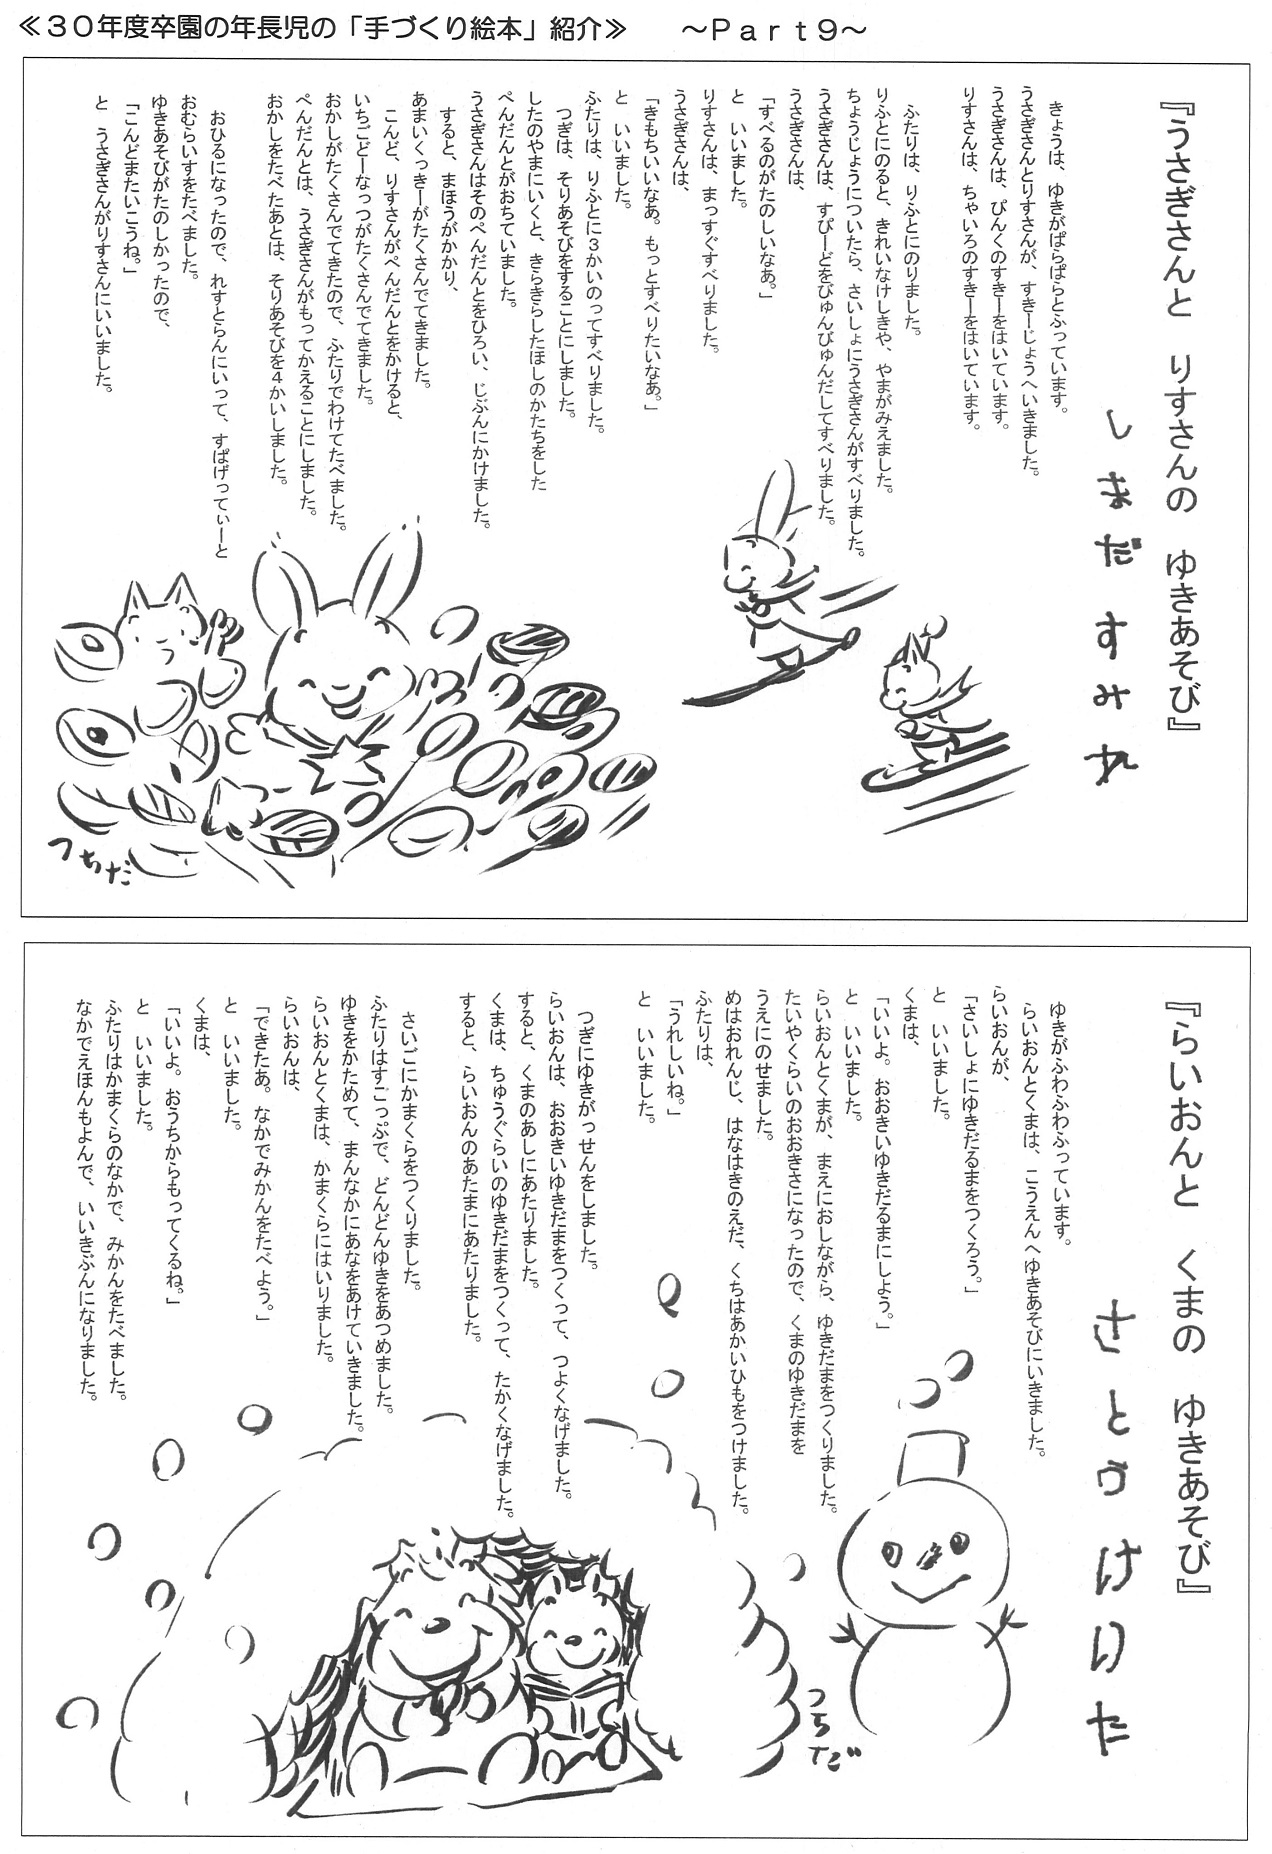 ≪３０年度卒園の年長児の「手づくり絵本」紹介≫　～Ｐａｒｔ９～
『うさぎさんと　りすさんの　ゆきあそび』
しまだ すみれ
きょうは、ゆきがぱらぱらとふっています。
うさぎさんとりすさんが、すきーじょうへいきました。
うさぎさんは、ぴんくのすきーをはいています。
りすさんは、ちゃいろのすきーをはいています。
ふたりは、りふとにのりました。
りふとにのると、きれいなけしきや、やまがみえました。
ちょうじょうについたら、さいしょにうさぎさんがすべりました。
うさぎさんは、すぴーどをびゅんびゅんだしてすべりました。
うさぎさんは、
「すべるのがたのしいなあ。」
と　いいました。
りすさんは、まっすぐすべりました。
うさぎさんは、
「きもちいいなあ。もっとすべりたいなあ。」
と　いいました。
ふたりは、りふとに３かいのってすべりました。
つぎは、そりあそびをすることにしました。
したのやまにいくと、きらきらしたほしのかたちをした
ぺんだんとがおちていました。
うさぎさんはそのぺんだんとをひろい、じぶんにかけました。
すると、まほうがかかり、
あまいくっきーがたくさんでてきました。
こんど、りすさんがぺんだんとをかけると、
いちごどーなっつがたくさんでてきました。
おかしがたくさんでてきたので、ふたりでわけてたべました。
ぺんだんとは、うさぎさんがもってかえることにしました。
おかしをたべたあとは、そりあそびを４かいしました。
おひるになったので、れすとらんにいって、すぱげってぃーと
おむらいすをたべました。
ゆきあそびがたのしかったので、
「こんどまたいこうね。」
と　うさぎさんがりすさんにいいました。
つちだ
『らいおんと　くまの　ゆきあそび』
さとう けいた
ゆきがふわふわふっています。
らいおんとくまは、こうえんへゆきあそびにいきました。
らいおんが、
「さいしょにゆきだるまをつくろう。」
と　いいました。
くまは、
「いいよ。おおきいゆきだるまにしよう。」
と　いいました。
らいおんとくまが、まえにおしながら、ゆきだまをつくりました。
たいやくらいのおおきさになったので、くまのゆきだまを
うえにのせました。
めはおれんじ、はなはきのえだ、くちはあかいひもをつけました。
ふたりは、
「うれしいね。」
と　いいました。
つぎにゆきがっせんをしました。
らいおんは、おおきいゆきだまをつくって、つよくなげました。
すると、くまのあしにあたりました。
くまは、ちゅうぐらいのゆきだまをつくって、たかくなげました。
すると、らいおんのあたまにあたりました。
さいごにかまくらをつくりました。
ふたりはすごっぷで、どんどんゆきをあつめました。
ゆきをかためて、まんなかにあなをあけていきました。
らいおんとくまは、かまくらにはいりました。
らいおんは、
「できたあ。なかでみかんをたべよう。」
と　いいました。
くまは、
「いいよ。おうちからもってくるね。」
と　いいました。
ふたりはかまくらのなかで、みかんをたべました。
なかでえほんもよんで、いいきぶんになりました。
つちだ